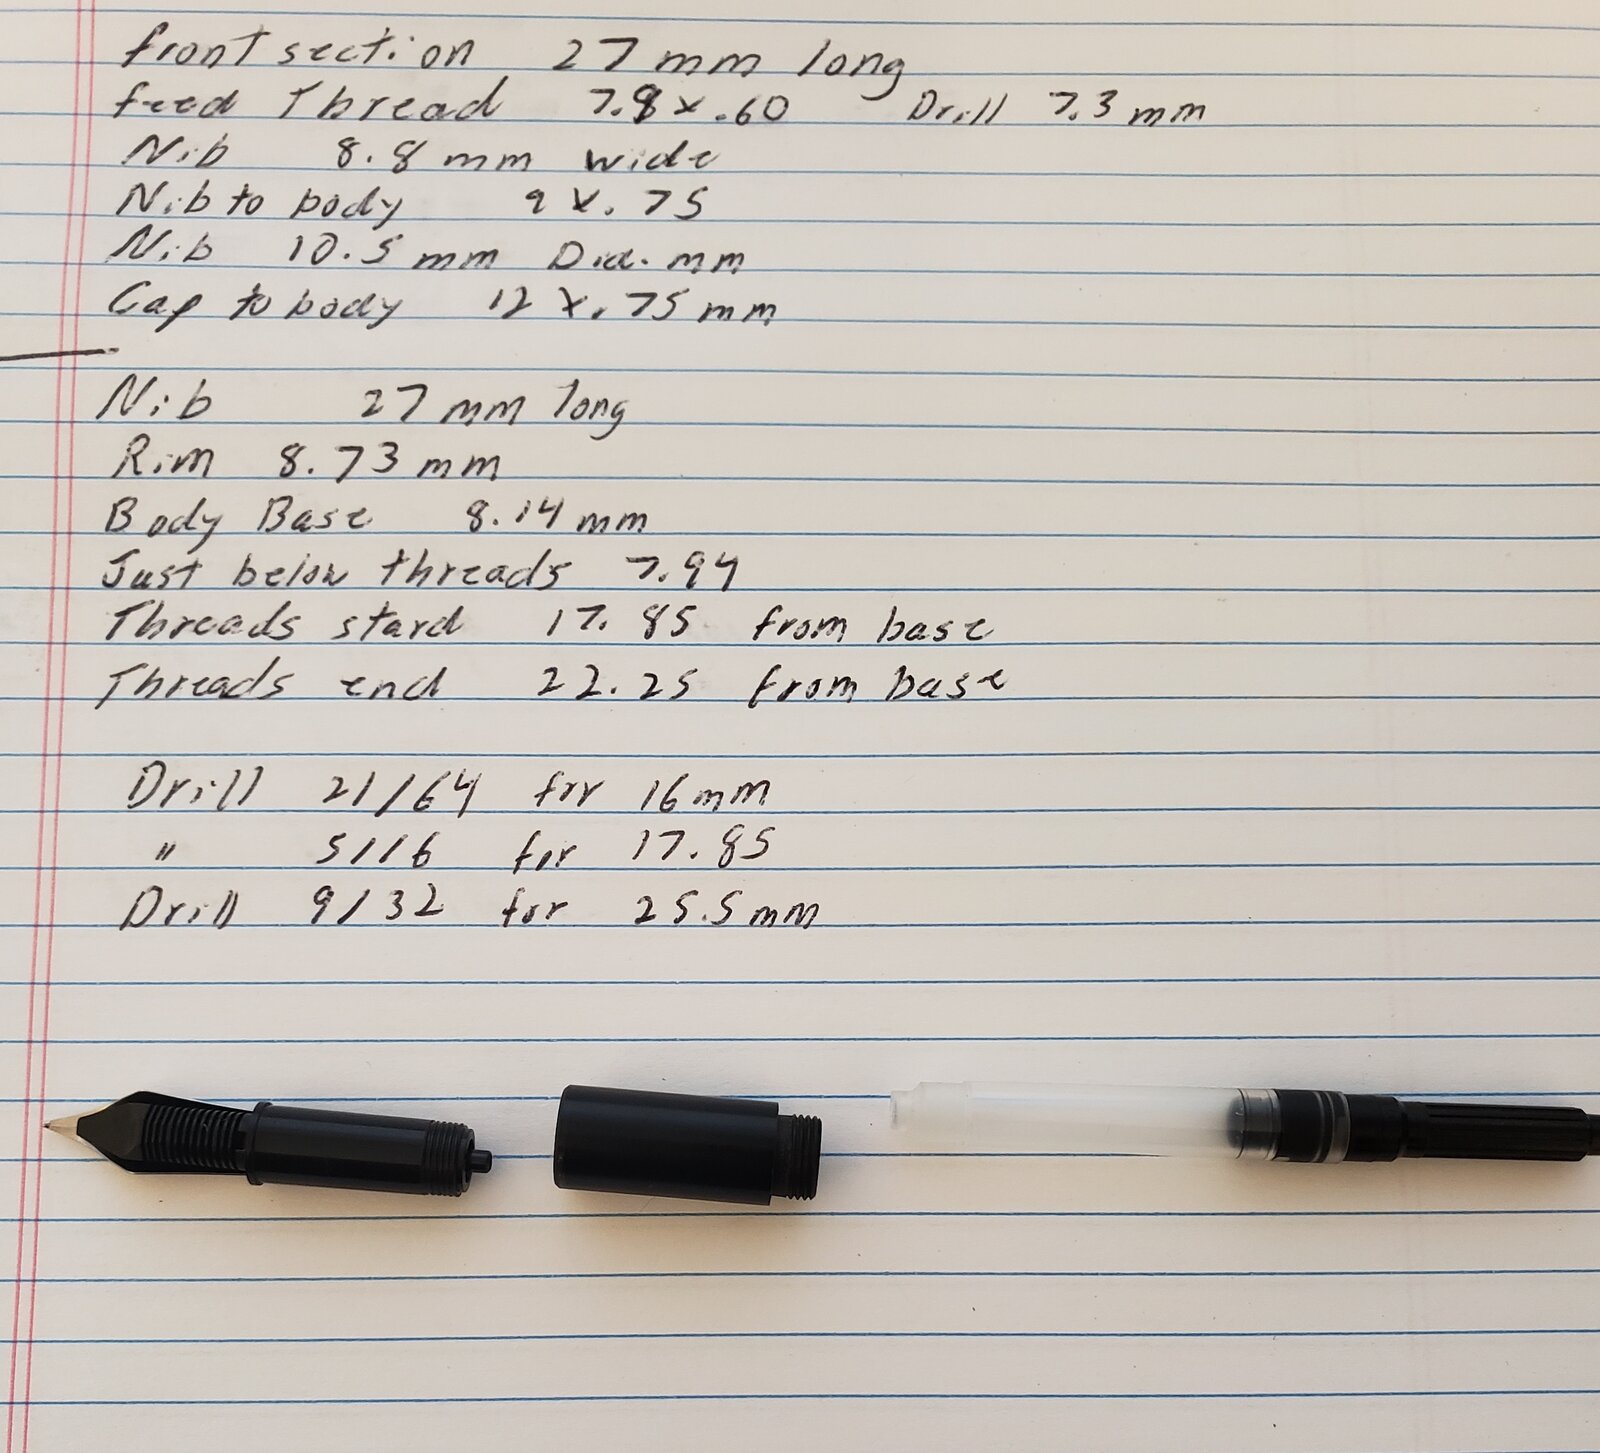 front section 27 mm long
feed Thread 7.8 x .60 Drill 7.3 mm
Nib 8.8 mm wide
Nib to body 9 x .75
Nib 10.5 mm Dia. mm
Cap to body 12 x .75 mm
Nib 27 mm long
Rim 8.73 mm
Body Base 8.14 mm
Just below threads 7.94
Threads stard 17.85 from base
Threads end 22.25 from base
Drill 21/64 for 16mm
" 5/16 for 17.85
Drill 9/32 for 25.5mm